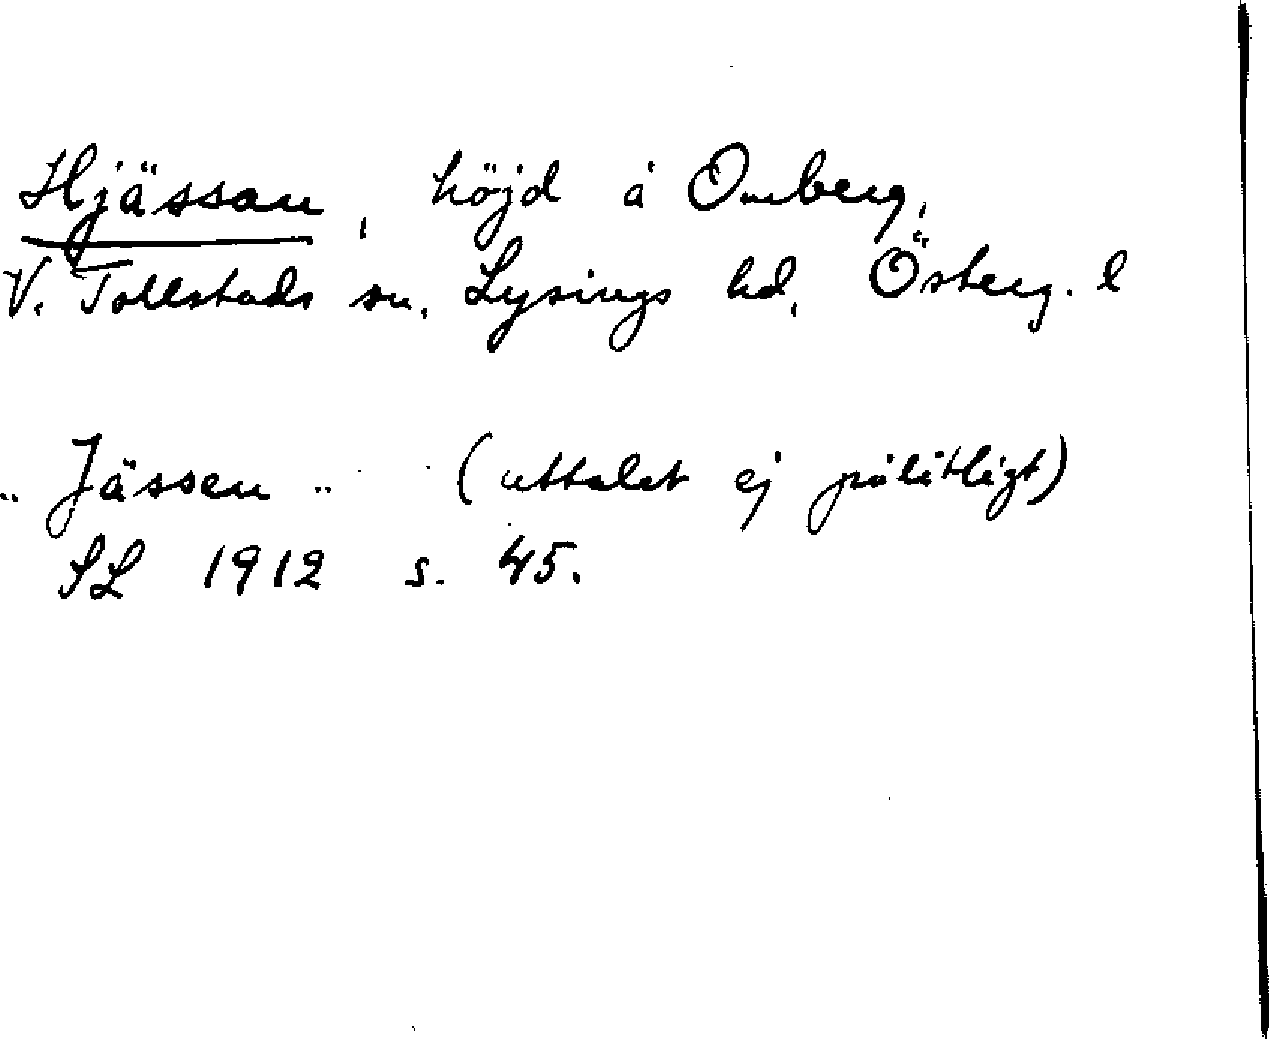 Hjässan, höjd å Omberg,
V. Tollstads sn, Lysings hd, Österg. l
"Jässen" (uttalet ej pålitligt)
SL 1912 s. 45.